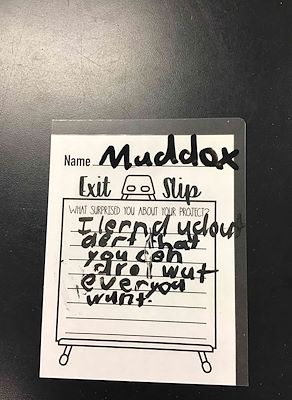 Name Muddox
Exit Slip
WHAT SURPRISED YOU ABOUT YOUR PROJECT?
I lernd ubout
art that
you cen
dro wut
everyou
wunt.